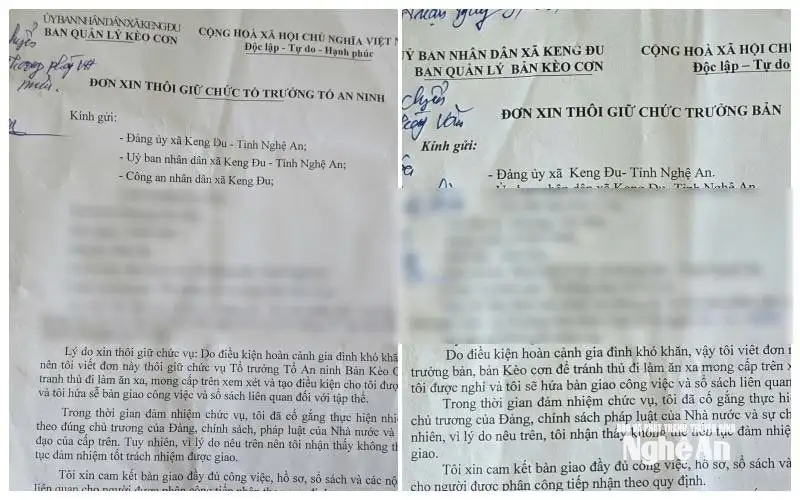 ỦY BAN NHÂN DÂN XÃ KENG ĐU
BAN QUẢN LÝ KÈO CƠN
CỘNG HOÀ XÃ HỘI CHỦ NGHĨA VIỆT N
Độc lập - Tự do - Hạnh phúc
ĐƠN XIN THÔI GIỮ CHỨC TỔ TRƯỞNG TỔ AN NINH
Kính gửi:
- Đảng ủy xã Keng Đu - Tỉnh Nghệ An;
- Uỷ ban nhân dân xã Keng Đu - Tỉnh Nghệ An;
- Công an nhân dân xã Keng Đu;
Lý do xin thôi giữ chức vụ: Do điều kiện hoàn cảnh gia đình khó khă
nên tôi viết đơn này thôi giữ chức vụ Tổ trưởng Tổ An ninh Bản Kèo C
tranh thủ đi làm ăn xa, mong cấp trên xem xét và tạo điều kiện cho tôi đượ
và tôi hứa sẽ bàn giao công việc và sổ sách liên quan đối với tập thể.
Trong thời gian đảm nhiệm chức vụ, tôi đã cố gắng thực hiện nhiệ
theo đúng chủ trương của Đảng, chính sách pháp luật của Nhà nước và
đạo của cấp trên. Tuy nhiên, vì lý do nêu trên nên tôi nhận thấy không th
tục đảm nhiệm tốt trách nhiệm được giao.
Tôi xin cam kết bàn giao đầy đủ công việc, hồ sơ, sổ sách và các nộ
liên quan cho người được phân công tiếp nhận theo quy định.
ỦY BAN NHÂN DÂN XÃ KENG ĐU
BAN QUẢN LÝ BẢN KÈO CƠN
CỘNG HOÀ XÃ HỘI CHỦ
Độc lập - Tự do
ĐƠN XIN THÔI GIỮ CHỨC TRƯỞNG BẢN
Kính gửi:
- Đảng ủy xã Keng Đu- Tỉnh Nghệ An.
nhân dân xã Keng Đu- Tỉnh Nghệ An.
Do điều kiện hoàn cảnh gia đình khó khăn, vậy tôi viết đơn n
trưởng bản, bản Kèo cơn để tránh thủ đi làm ăn xa mong cấp trên x
tôi được nghỉ và tôi sẽ hứa bàn giao công việc và sổ sách liên quan
Trong thời gian đảm nhiệm chức vụ, tôi đã cố gắng thực hiện
chủ trương của Đảng, chính sách pháp luật của Nhà nước và sự ch
nhiên, vì lý do nêu trên, tôi nhận thấy không thể tiếp tục đảm nhiệm
giao.
Tôi xin cam kết bàn giao đầy đủ công việc, hồ sơ, sổ sách
cho người được phân công tiếp nhận theo quy định.
BÁO VÀ PHÁT THANH, TRUYỀN HÌNH
Nghệ An